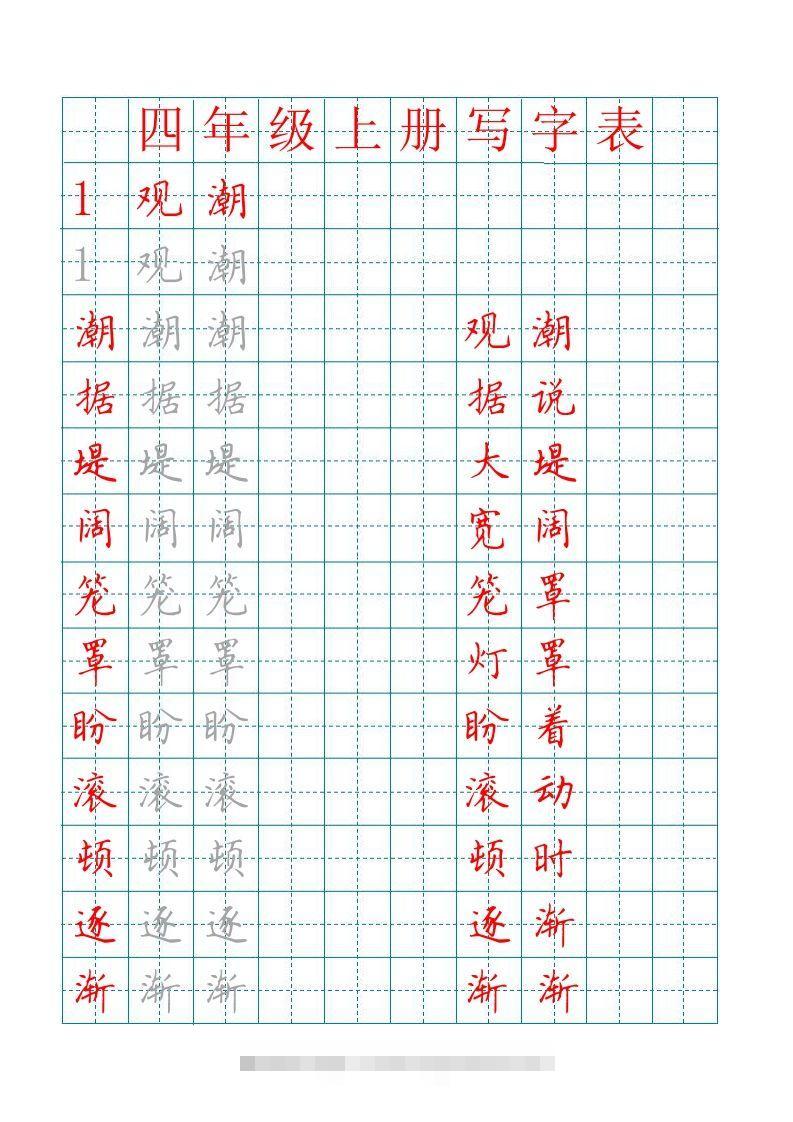 四年级上册写字表
1 观潮
1 观潮
潮 潮 潮 观潮
据 据 据 据说
堤 堤 堤 大堤
阔 阔 阔 宽阔
笼 笼 笼 笼罩
罩 罩 罩 灯罩
盼 盼 盼 盼着
滚 滚 滚 滚动
顿 顿 顿 顿时
逐 逐 逐 逐渐
渐 渐 渐 渐渐